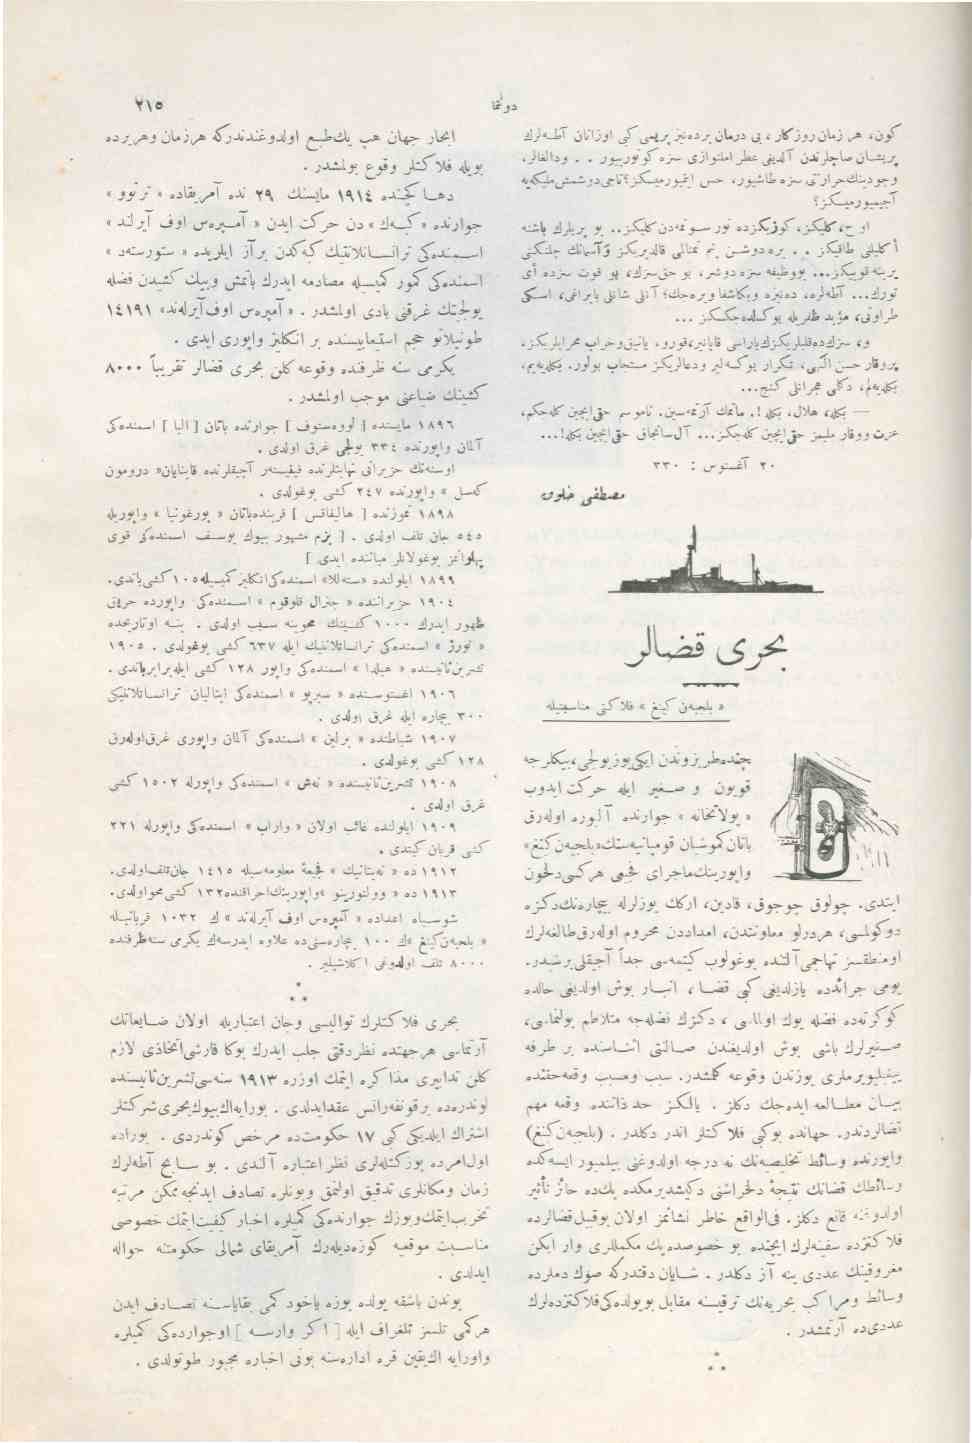 دوننما
٢١٥
كون، هر زمان روزكار، بی درمان برده‌نیز پریمی كبی اوزانان آطه‌لرك
پریشان صاچلرندن آلدیغی عطر املنوازی سزه كوتوریيور . . ودالغالر،
وجودینك حرارتی سزه طاشيور، حس ایتمیورمیسكز؟ تاجی دوشمش ملیكه‌یه
آجیمیورمیسكز؟
او ح، كلیكز، كوزیكزده نور سونمه‌دن كلیكز.. بو پریلرك باشنه
اكلیلنی طاقیكز . . یره دوشن تمثالنی قالدیریكز و آسمانك جلنكنی
یرینه قوییكز... بو وظیفه سزه دوشر، بو حق سزك، بو قوت سزده ای
تورك... آطه‌لره، ده‌نیزه ویكاشفا ویره‌جك؛ آنلی شانلی بایراغی، اسكی
طراوتی، مؤبد ظفریله یوكسلده‌جكسكز ...
و، سزك ده قلبلریكزك یاراسی قاپانیر، قورو، یانیق وخراب محرابلریكز،
پروقار حسن الهی، تكرار یوكسه‌لیر ودعالریكز مستجاب بولور. بكله‌یه‌یم،
بكله‌یه‌لم، دكلی هجرانلی كنج...
— بكله، هلال، بكله !. ماتمك آرتمه‌سین. ناموسم حقی ایچین كله‌جكم،
عزت ووقار ملیمز حقی ایچین كله‌جكز... آل سانجاق حقی ایچین بكله !...
٢٠ آغستوس : ٣٣٠
مصطفی خلوق
بحری قضالر
« بلجیه‌ن كینغ » فلاكتی مناسبتیله
چنده‌طربزوندن ایكی یوز یولجی، بیكلرجه
قویون و صغیر ایله حركت ایدوب
« پولاتخانه » جوارنده آلبوره اوله‌رق
باتان كموشیان قومپانیه‌سنك «بلجیه‌ن كینغ»
واپورینك ماجرای فجیعی هركسی دلخون
ایتدی. چولوق چوجوق، قادین، اركك یوزلرله بیچاره‌نك دكزه
دوكولمسی، هردرلو معاونتدن، امداددن محروم اوله‌رق طالغه‌لرك
اومنطقسز تهاجمی آلتنده بوغولوب كیتمه‌سی جداً آجیقلی برشیدر.
یومی جرائدده یازلدیغی كبی قضا، انبار بوش اولدیغی حالده
كوكرته‌ده فضله یوك اولماسی، دكزك فضله‌جه متلاطم بولنماسی،
صغیرلرك باشی بوش اولدیغندن صالنتی اثناسنده بر طرفه
ییغیلیویرملری یوزندن وقوعه كلمشدر. سبب ومسبب وقعه حقنده
بیان مطالعه ایده‌جك دكلز . یالكز حد ذاتنده وقعه مهم
قضالردندر. جهانده بوكبی فلاكتلر اندر دكلدر. (بلجیه‌ن كینغ)
واپورنده وسائط تخلیصیه‌نك نه درجه اولدوغنی بیلمیور ایسه‌كده
وسائطك قضانك نتیجهٔ دلخراشنی دكیشدیرمكده پك‌ده حائز تأثیر
اولدوغنه قانع دكلز. فی الواقع خاطر نشانمز اولان بوقبیل قضالرده
فلاكتزده سفینه‌لرك ایچنده بو خصوصده پك مكمللری وار ایكن
مغروقینك عددی ینه آز دكلدر . شایان دقتدركه صوك دملرده
وسائط ومراكب بحریه‌نك ترقیسنه مقابل بویولده‌كی فلاكتزده‌لرك
عددی‌ده آرتمشدر .
* * *
ابحار جهان هپ یك‌طبع اولدوغندندركه هرزمان وهریرده
بویله فلاكتلر وقوع بولمشدر .
دها كچنده ١٩١٤ مایسنك ٢٩ نده آمریقاده « ترنوو »
جوارنده « كبه‌ك » دن حركت ایدن « آمپره‌س اوف آیرلند »
اسمنده‌كی ترانساتلانتیك كبه‌كدن براز ایلریده « ستورسته‌د »
اسمنده‌كی كمور كمیسیله مصادمه ایدرك باتمش وبیك كشیدن فضله
یولجینك غرقنی بادی اولمشدر . « آمپره‌س اوف آیرله‌ند » ١٤١٩١
طونیلاتو حجم استیعابیسنده بر انكلیز واپوری ایدی .
یكرمی سنه ظرفنده وقوعه كلن بحری قضالر تقریباً ٨٠٠٠
كشینك ضیاعنی موجب اولمشدر .
١٨٩٦ مایسنده [ لووه‌ستوف ] جوارنده باتان [ البا ] اسمنده‌كی
آلمان واپورنده ٣٣٤ یولجی غرق اولدی .
اوسنه‌نك حزیرانی نهایتلرنده فینیسته‌ر آچیقلرنده قاینایان « درومون
كه‌سل » واپورنده ٢٤٧ كشی بوغولدی .
١٨٩٨ تموزنده [ هالیفاقس ] قربنده باتان « بورغونیا » واپوریله
٥٤٥ جان تلف اولدی . [ بزم مشهور بیوك یوسف اسمنده‌كی قوی
پهلوانمز بوغولانلر میاننده ایدی ]
١٨٩٩ ایلولنده «سته‌للا» اسمنده‌كی انكلیز كمیسیله ١٠٥ كشی باتدی.
١٩٠٤ حزیراننده « جنرال قلوقوم » اسمنده‌كی واپورده حریق
ظهور ایدرك ١٠٠٠ كشینك محوینه سبب اولدی . ینه اوتاریخده
« نورژ » اسمنده‌كی ترانساتلانتیك ایله ٦٣٧ كشی بوغولدی . ١٩٠٥
تشرین ثانیسنده « هیلدا » اسمنده‌كی واپور ١٢٨ كشی ایله برابر باتدی .
١٩٠٦ اغستوسنده « سیریو » اسمنده‌كی ایتالیان ترانساتلانتیكی
٣٠٠ بیچاره ایله غرق اولدی .
١٩٠٧ شباطنده « برلین » اسمنده‌كی آلمان واپوری غرق اوله‌رق
١٢٨ كشی بوغولدی .
١٩٠٨ تشرین ثانیسنده « نه‌ش » اسمنده‌كی واپورله ١٥٠٢ كشی
غرق اولدی .
١٩٠٩ ایلولنده غائب اولان « واراب » اسمنده‌كی واپورله ٢٢١
كشی قربان كیتدی .
١٩١٢ ده « ته‌یتانیك » فجیعهٔ معلومه‌سیله ١٤١٥ جان تلف اولدی.
١٩١٣ ده « وولتورینو » واپورینك احراقنده ١٣٢ كشی محو اولدی.
شوسیاه اعداده « آمپره‌س اوف آیرله‌ند » ك ١٠٣٢ قربانیله
« بلجیه‌ن كینغ » ك ١٠٠ بیچاره‌سی‌ده علاوه ایدرسه‌ك یكرمی سنه ظرفنده
٨٠٠٠ تلف اولدوغی اكلاشیلیر .
* * *
بحری فلاكتلرك توالیسی وجان اعتباریله اولان ضایعاتك
آرتماسی هرجهتده نظر دقتی جلب ایدرك بوكا قارشی اتخاذی لازم
كلن تدابیری مذاكره ایتمك اوزره ١٩١٣ سنه‌سی تشرین ثانیسنده
لوندره‌ده بر قونفه‌رانس عقد ایدلدی . بورایه اك بیوك بحری شركتلر
اشتراك ایلدیكی كبی ١٧ حكومت‌ده مرخص كوندردی . بوراده
اول امرده بوز كتله‌لری نظر اعتباره آلندی . بو سابح آطه‌لرك
زمان ومكانلری تدقیق اولنمق وبونلره تصادف ایدنجه ممكن مرتبه
تخریب ایتمك وبوزك جوارنده‌كی كمیلره اخبار كیفیت ایتمك خصوصی
مناسبت موقعیه كوزه‌دیله‌رك آمریقای شمالی حكومتنه حواله
ایدلدی .
بوندن باشقه یولده بوزه یاخود كمی بقایاسنه تصادف ایدن
هركمی تلسز تلغراف ایله [ اكر وارسه ] اوجوارده‌كی كمیلره
واورایه اك یقین قره اداره‌سنه بونی اخباره مجبور طوتولدی .